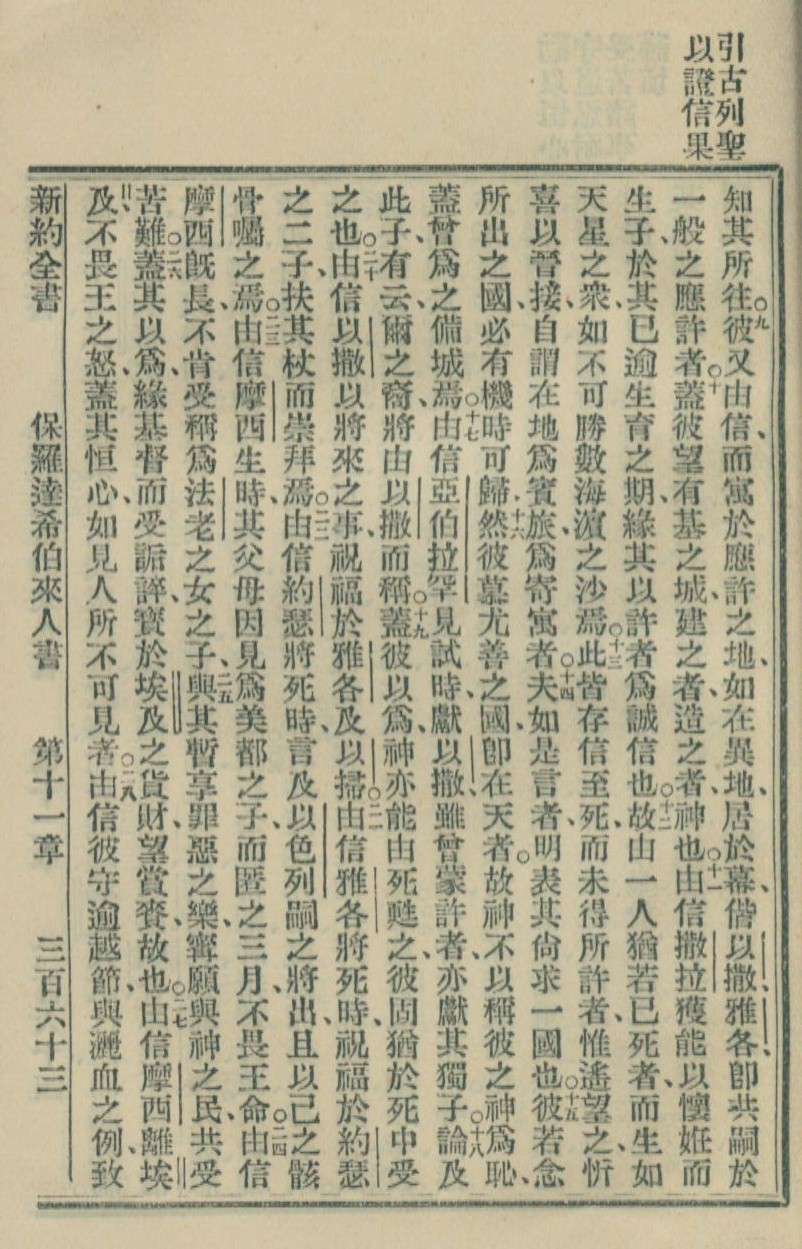 引古列聖
以證信果
知其所往。九彼又由信、而寓於應許之地、如在異地、居於幕、偕以撒、雅各、即共嗣於
一般之應許者。十蓋彼望有基之城、建之者、造之者、神也。十一由信撒拉獲能以懷姙而
生子、於其已逾生育之期、緣其以許者爲誠信也。十二故由一人猶若已死者、而生如
天星之衆、如不可勝數海濱之沙焉。十三此皆存信至死、而未得所許者、惟遙望之、忻
喜以晉接、自謂在地爲賓旅、爲寄寓者。十四夫如是言者、明表其尙求一國也。十五彼若念
所出之國、必有機時可歸。十六然彼慕尤善之國、即在天者。故神不以稱彼之神爲恥、
蓋曾爲之備城焉。十七由信亞伯拉罕見試時、獻以撒、雖曾蒙許者、亦獻其獨子。十八論及
此子、有云、爾之裔、將由以撒而稱。十九蓋彼以爲、神亦能由死甦之、彼固猶於死中受
之也。二十由信以撒以將來之事、祝福於雅各及以掃。二一由信雅各將死時、祝福於約瑟
之二子、扶其杖而崇拜焉。二二由信約瑟將死時、言及以色列嗣之將出、且以己之骸
骨囑之焉。二三由信摩西生時、其父母因見爲美都之子、而匿之三月、不畏王命。二四由信
摩西旣長、不肯受稱爲法老之女之子、二五與其暫享罪惡之樂、寧願與神之民、共受
苦難。二六蓋其以爲、緣基督而受詬誶、寶於埃及之貨財、望賞賚故也。二七由信摩西離埃
及、不畏王之怒、蓋其恒心、如見人所不可見者。二八由信彼守逾越節、與灑血之例、致
新約全書 保羅達希伯來人書 第十一章 三百六十三